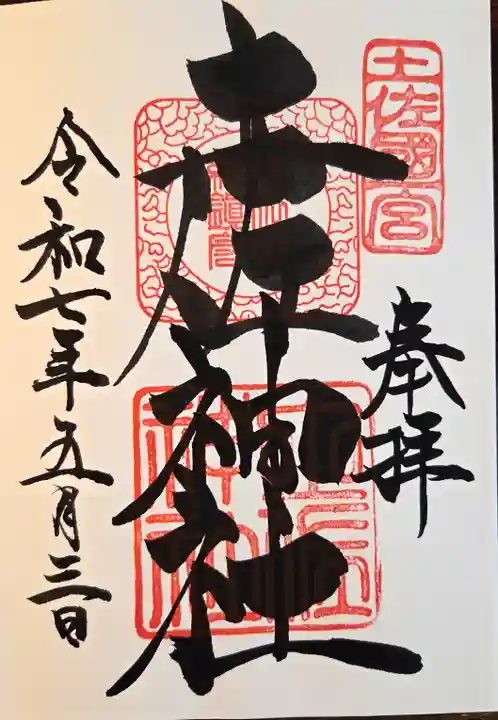 土佐國
一宮
奉拝
土佐神社
令和七年五月三日